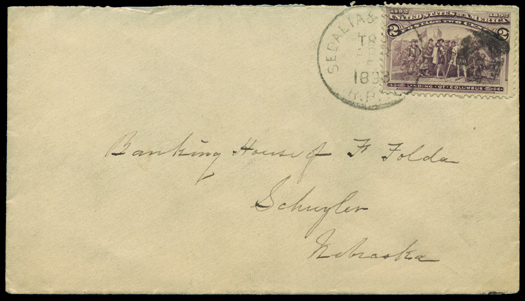 1492 1892
UNITED STATES OF AMERICA
2 2
LANDING OF COLUMBUS
SEDALIA &
TR
189
R.P.
Banking House of F Folda
Schuyler
Nebraska